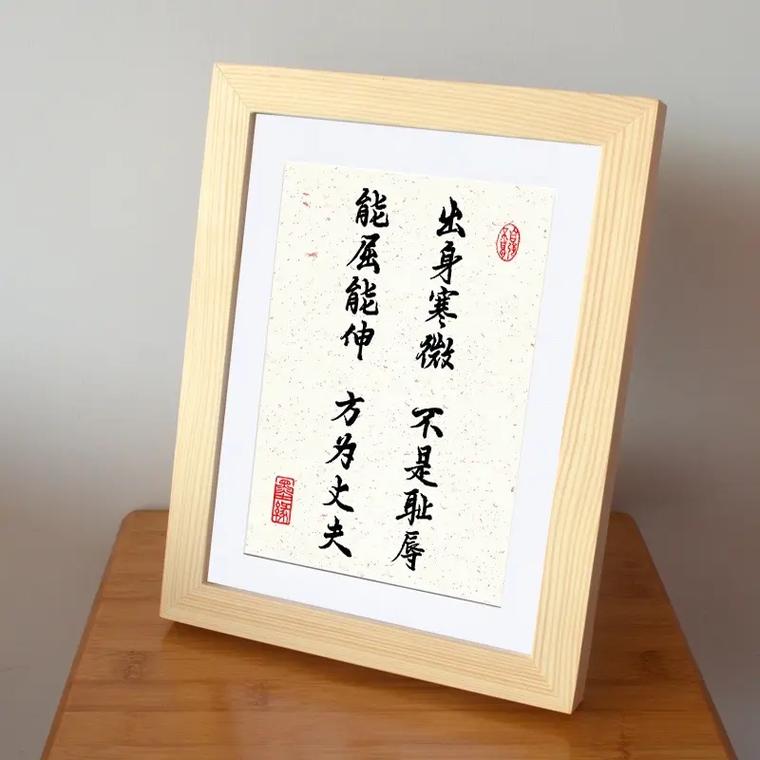 出身寒微 不是耻辱
能屈能伸 方为丈夫